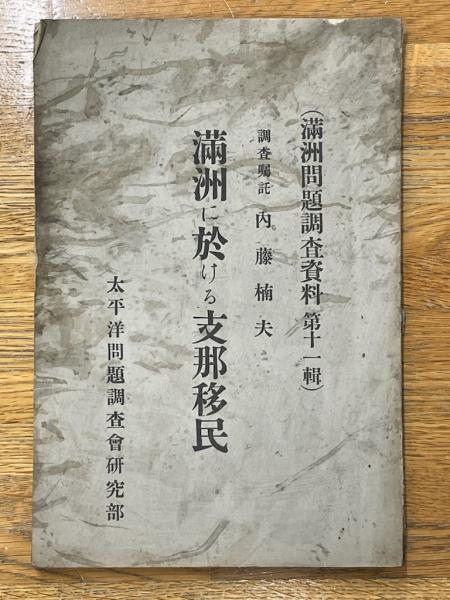 (滿洲問題調査資料 第十一輯)
調査囑託 內藤楠夫
滿洲に於ける支那移民
太平洋問題調査會研究部